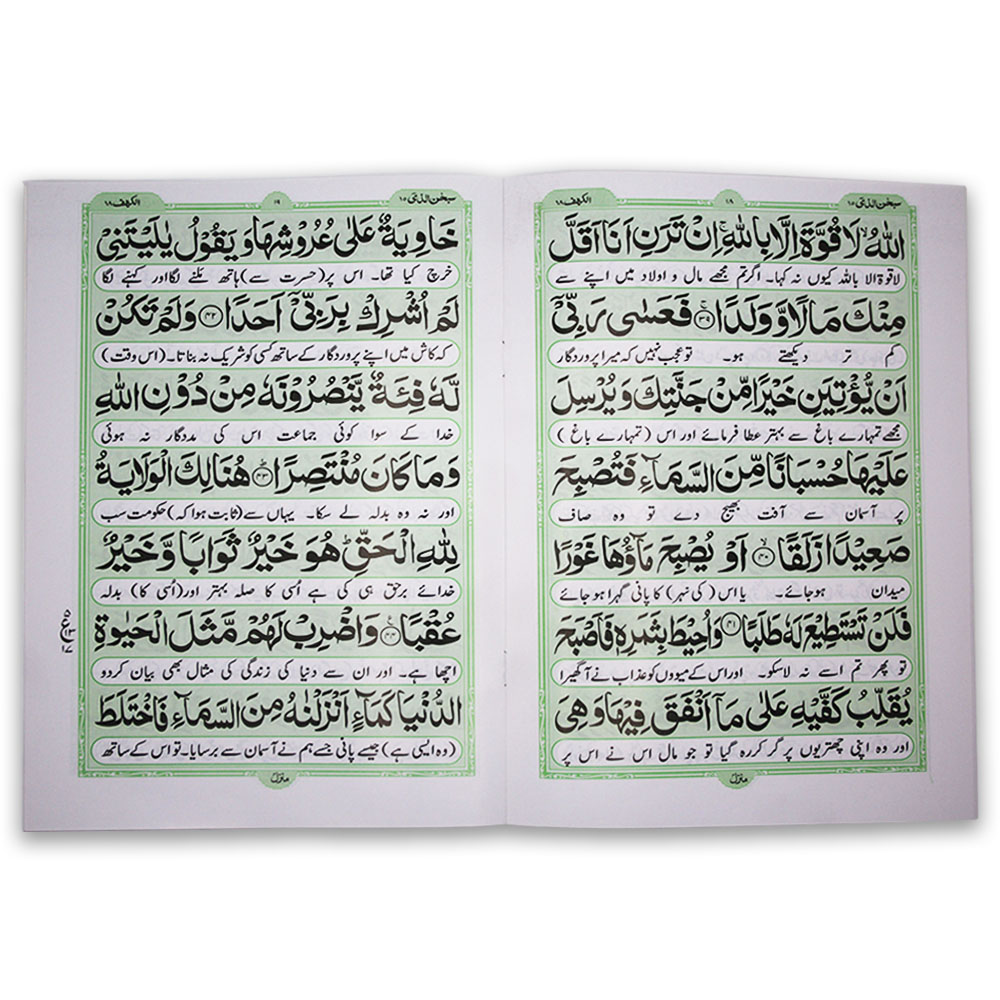 سبحن الذی ۱۵
الکهف ۱۸
اللّٰهُ ۙ لَا قُوَّةَ اِلَّا بِاللّٰهِ ۚ اِنْ تَرَنِ اَنَا اَقَلَّ
لاقوة الا باللہ کیوں نہ کہا۔ اگر تم مجھے مال و اولاد میں اپنے سے
مِنْكَ مَالًا وَّوَلَدًا ۚ﴿۳۹﴾ فَعَسٰى رَبِّیْۤ
کم تر دیکھتے ہو۔ تو عجب نہیں کہ میرا پروردگار
اَنْ یُّؤْتِیَنِ خَیْرًا مِّنْ جَنَّتِكَ وَ یُرْسِلَ
مجھے تمہارے باغ سے بہتر عطا فرمائے اور اس (تمہارے باغ)
عَلَیْهَا حُسْبَانًا مِّنَ السَّمَآءِ فَتُصْبِحَ
پر آسمان سے آفت بھیج دے تو وہ صاف
صَعِیْدًا زَلَقًا ۙ﴿۴۰﴾ اَوْ یُصْبِحَ مَآؤُهَا غَوْرًا
میدان ہو جائے۔ یا اس (کی نہر) کا پانی گہرا ہو جائے
فَلَنْ تَسْتَطِیْعَ لَهٗ طَلَبًا ﴿۴۱﴾ وَ اُحِیْطَ بِثَمَرِهٖ فَاَصْبَحَ
تو پھر تم اسے نہ لا سکو۔ اور اس کے میووں کو عذاب نے آ گھیرا
یُقَلِّبُ كَفَّیْهِ عَلٰى مَاۤ اَنْفَقَ فِیْهَا وَ هِیَ
اور وہ اپنی چھتریوں پر گر کر رہ گیا تو جو مال اس نے اس پر
منزل
سبحن الذی ۱۵
الکهف ۱۸
خَاوِیَةٌ عَلٰى عُرُوْشِهَا وَ یَقُوْلُ یٰلَیْتَنِیْ
خرچ کیا تھا۔ اس پر (حسرت سے) ہاتھ ملنے لگا اور کہنے لگا
لَمْ اُشْرِكْ بِرَبِّیْۤ اَحَدًا ﴿۴۲﴾ وَ لَمْ تَكُنْ
کہ کاش میں اپنے پروردگار کے ساتھ کسی کو شریک نہ بناتا۔ (اس وقت)
لَّهٗ فِئَةٌ یَّنْصُرُوْنَهٗ مِنْ دُوْنِ اللّٰهِ
خدا کے سوا کوئی جماعت اس کی مددگار نہ ہوئی
وَ مَا كَانَ مُنْتَصِرًا ؕ﴿۴۳﴾ هُنَالِكَ الْوَلَایَةُ
اور نہ وہ بدلہ لے سکا۔ یہاں سے (ثابت ہوا کہ) حکومت سب
لِلّٰهِ الْحَقِّ ؕ هُوَ خَیْرٌ ثَوَابًا وَّ خَیْرٌ
خدائے برحق ہی کی ہے اُسی کا صلہ بہتر اور (اُسی کا) بدلہ
عُقْبًا ﴿۴۴﴾ وَ اضْرِبْ لَهُمْ مَّثَلَ الْحَیٰوةِ
اچھا ہے۔ اور ان سے دنیا کی زندگی کی مثال بھی بیان کردو
الدُّنْیَا كَمَآءٍ اَنْزَلْنٰهُ مِنَ السَّمَآءِ فَاخْتَلَطَ
(وہ ایسی ہے) جیسے پانی جسے ہم نے آسمان سے برسایا۔ تو اس کے ساتھ
منزل